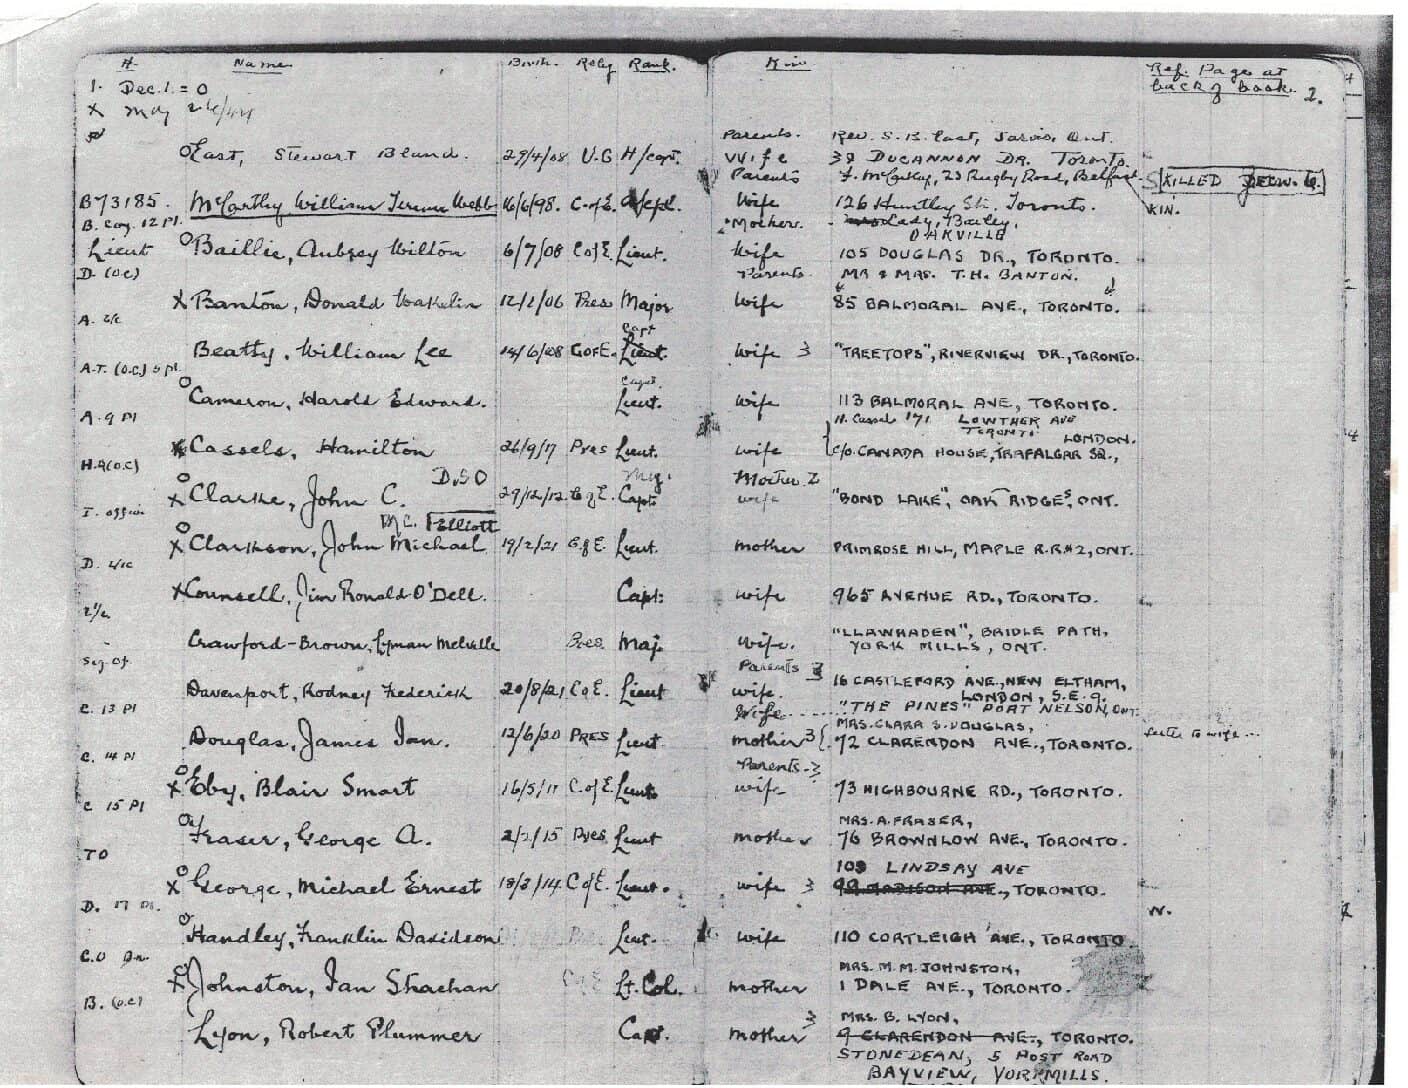 # Name Birth. Relg Rank. Kin Ref. Page at
back of book. 2.
1. Dec. 1. = 0
X May 26/44
Parents. Rev. S. B. East, Jarvis, Ont.
East, Stewart Bland. 29/4/08 U.C H/Capt. Wife 38 DUCANNON DR. Toronto.
Parents J. McCarthy, 23 Rugby Road, Belfast. KILLED
B73185. McCarthy William Terence Webb 16/6/98. C. of E. Wife 126 Huntley St. Toronto. KIN.
B. Coy. 12 Pl. Mother. Lady, Bailey,
OAKVILLE
Lieut Baillie, Aubrey Wilton 6/7/08 C of E. Lieut. Wife 105 DOUGLAS DR., TORONTO.
D. (O.C) Parents MR & MRS. T.H. BANTON.
X Banton, Donald Wakelin 12/2/06 Pres Major Wife 85 BALMORAL AVE., TORONTO.
A. 2/c Capt
Beatty, William Lee 14/6/08 C of E. Lieut. Wife 3 "TREETOPS", RIVERVIEW DR., TORONTO.
A.T. (O.C) 5 pl. Capt.
Cameron, Harold Edward. Lieut. Wife 113 BALMORAL AVE., TORONTO.
A. 9 Pl H. Cassels 171 LOWTHER AVE
TORONTO LONDON.
X Cassels, Hamilton 26/9/17 Pres Lieut. wife c/o. CANADA HOUSE, TRAFALGAR SQ.,
H.Q (O.C) D.S.O Maj. Mother. 2
X Clarke, John C. 29/12/12. C of E. Capt. wife "BOND LAKE", OAK RIDGES, ONT.
I. officer M.C. Elliott
X Clarkson, John Michael 19/2/21 C of E. Lieut. mother PRIMROSE HILL, MAPLE R.R#2, ONT.
D. 2/ic
X Counsell, Jim Ronald O'Dell. Capt: wife 965 AVENUE RD., TORONTO.
2i/c
"LLAWHADEN", BRIDLE PATH,
Crawford-Brown, Lyman Melville Pres. Maj. wife. YORK MILLS, ONT.
Sig. Of Parents 3
Davenport, Rodney Frederick 20/8/21 C of E. Lieut wife. 16 CASTLEFORD AVE., NEW ELTHAM,
LONDON, S.E.9.
C. 13 Pl Wife "THE PINES" PORT NELSON, ONT.
MRS. CLARA S. DOUGLAS,
Douglas, James Ian. 12/6/20 PRES Lieut mother 3 72 CLARENDON AVE., TORONTO. Letter to wife...
C. 14 Pl Parents. 3
X Eby, Blair Smart 16/5/11 C of E. Lieut. wife 73 HIGHBOURNE RD., TORONTO.
C 15 Pl MRS. A. FRASER,
Fraser, George A. 2/2/15 Pres Lieut mother 76 BROWNLOW AVE., TORONTO.
TO 109 LINDSAY AVE
X George, Michael Ernest 18/2/14 C of E. Lieut. wife 3 99 MADISON AVE., TORONTO.
D. 17 Pl. W.
Handley, Franklin Davidson Lieut. wife 110 CORTLEIGH AVE., TORONTO
C.O MRS. M. M. JOHNSTON,
X Johnston, Ian Strachan C of E Lt. Col. mother 1 DALE AVE., TORONTO.
B. (O.C) 3 MRS. B. LYON,
Lyon, Robert Plummer Capt. mother 9 CLARENDON AVE., TORONTO.
STONEDEAN, 5 POST ROAD
BAYVIEW, YORKMILLS.